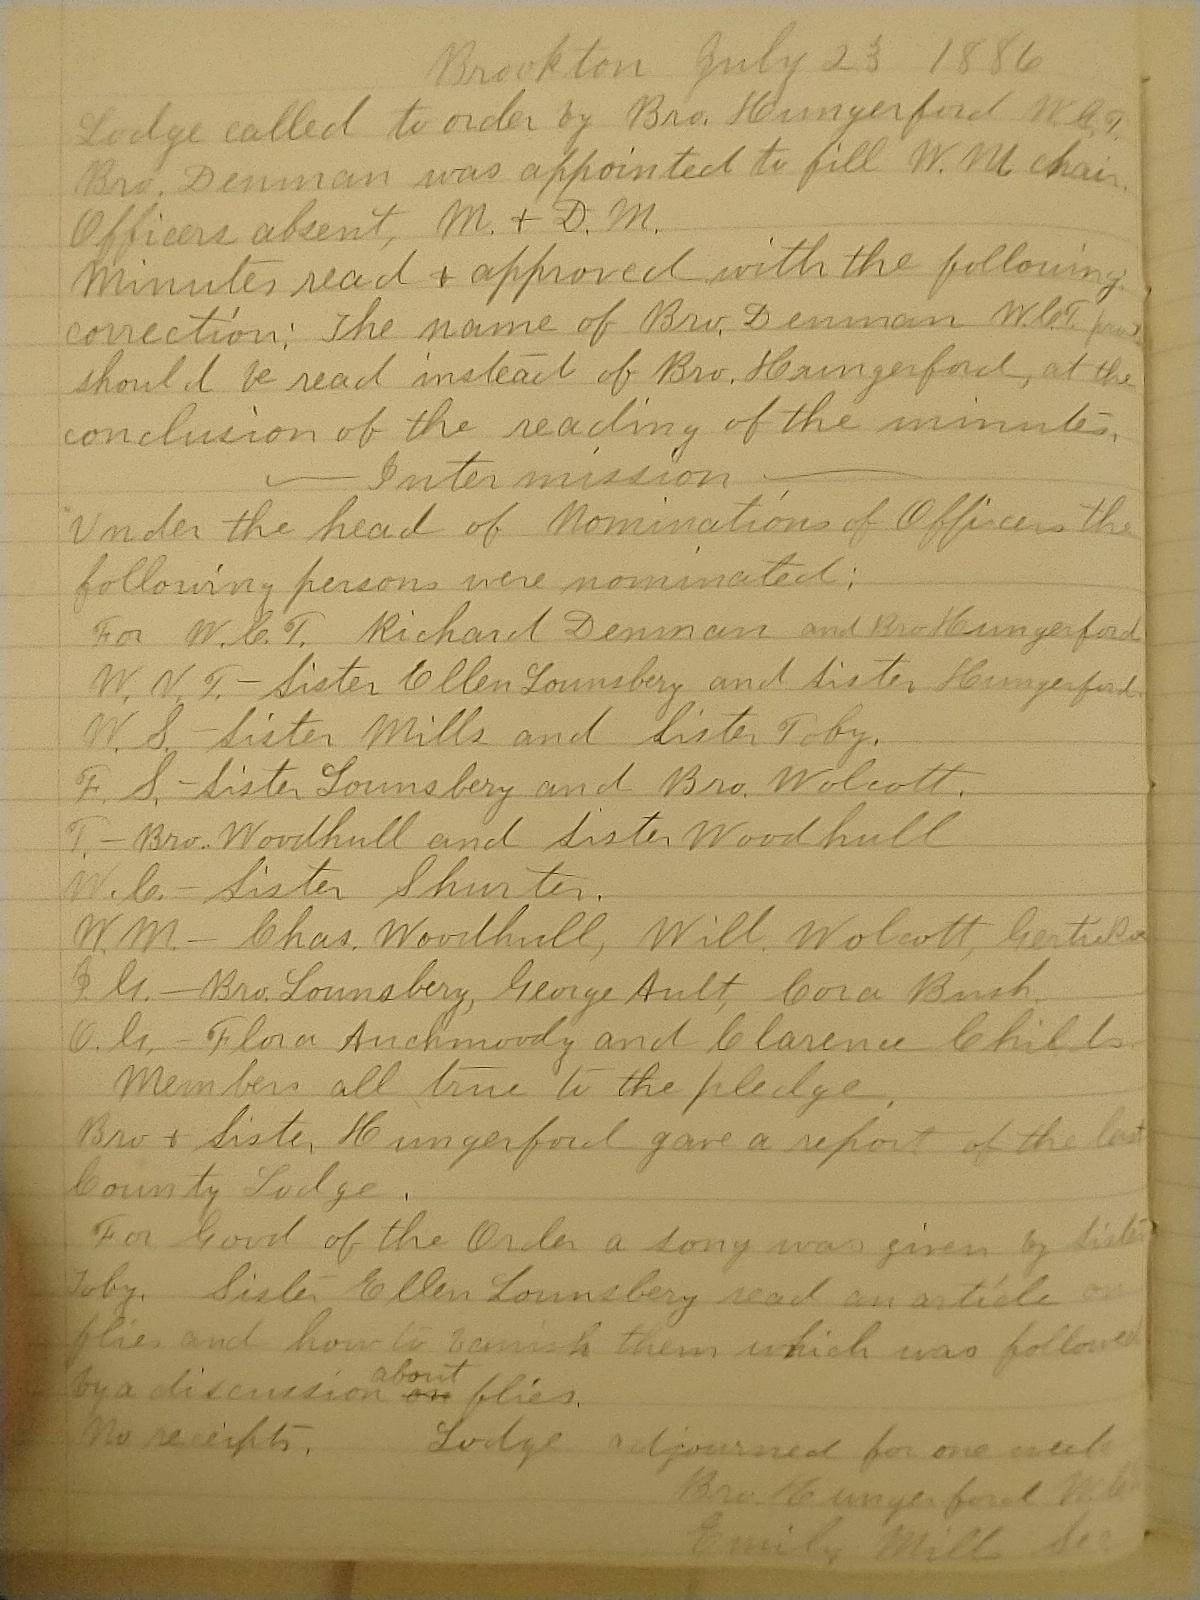 Brookton July 23 1886
Lodge called to order by Bro. Hungerford W.C.T.
Bro. Denman was appointed to fill W. M chair.
Officers absent, M. + D. M.
Minutes read + approved with the following
correction: The name of Bro. Denman W.C.T.
should be read instead of Bro. Hungerford, at the
conclusion of the reading of the minutes.
Intermission
Under the head of Nominations of Officers the
following persons were nominated:
For W.C.T. Richard Denman and Bro Hungerford
W. V. T. - Sister Ellen Lounsbery and Sister Hungerford.
W. S. - Sister Mills and Sister Toby.
F. S. - Sister Lounsbery and Bro. Wolcott.
T. - Bro. Woodhull and Sister Woodhull
W. C. - Sister Shurter.
W. M. - Chas. Woodhull, Will. Wolcott,
I. G. - Bro. Lounsbery, George Ault, Cora Bush.
O. G. - Flora Auchmoody and Clarence Childs.
Members all true to the pledge.
Bro + Sister Hungerford gave a report of the last
County Lodge.
For Good of the Order a song was given by Sister
Toby. Sister Ellen Lounsbery read an article on
flies and how to banish them which was followed
by a discussion on about flies.
No receipts. Lodge adjourned for one week
Bro. Hungerford
Emily Mills Sec